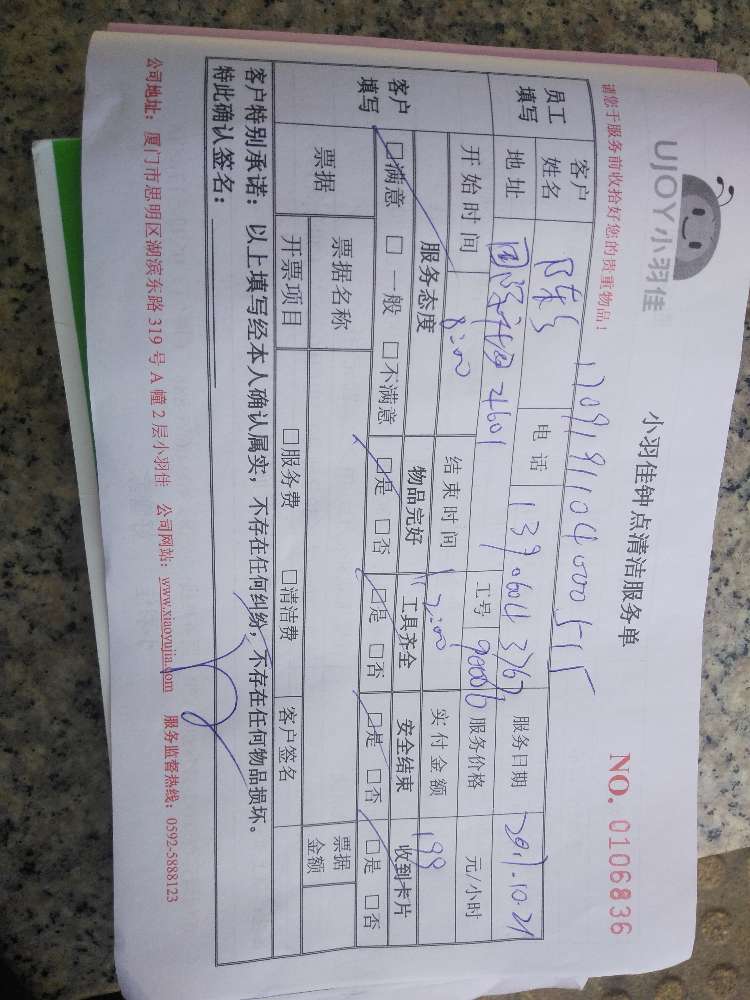 UJOY小羽佳
小羽佳钟点清洁服务单
NO. 0106836
请您于服务前收拾好您的贵重物品！
员工填写 客户姓名 电话 服务日期 2017.10.21
地址 4601 工号 90006 服务价格 元/小时
开始时间 8:00 结束时间 12:00 实付金额 199
客户填写 服务态度 物品完好 工具齐全 安全结束 收到卡片
□满意 □一般 □不满意 □是 □否 □是 □否 □是 □否 □是 □否
票据 票据名称 客户签名 票据金额
开票项目 □服务费 □清洁费
客户特别承诺：以上填写经本人确认属实，不存在任何纠纷，不存在任何物品损坏。
特此确认签名：
公司地址：厦门市思明区湖滨东路 319 号 A 幢 2 层小羽佳 公司网站：www.xiaoyujia.com 服务监督热线：0592-5888123